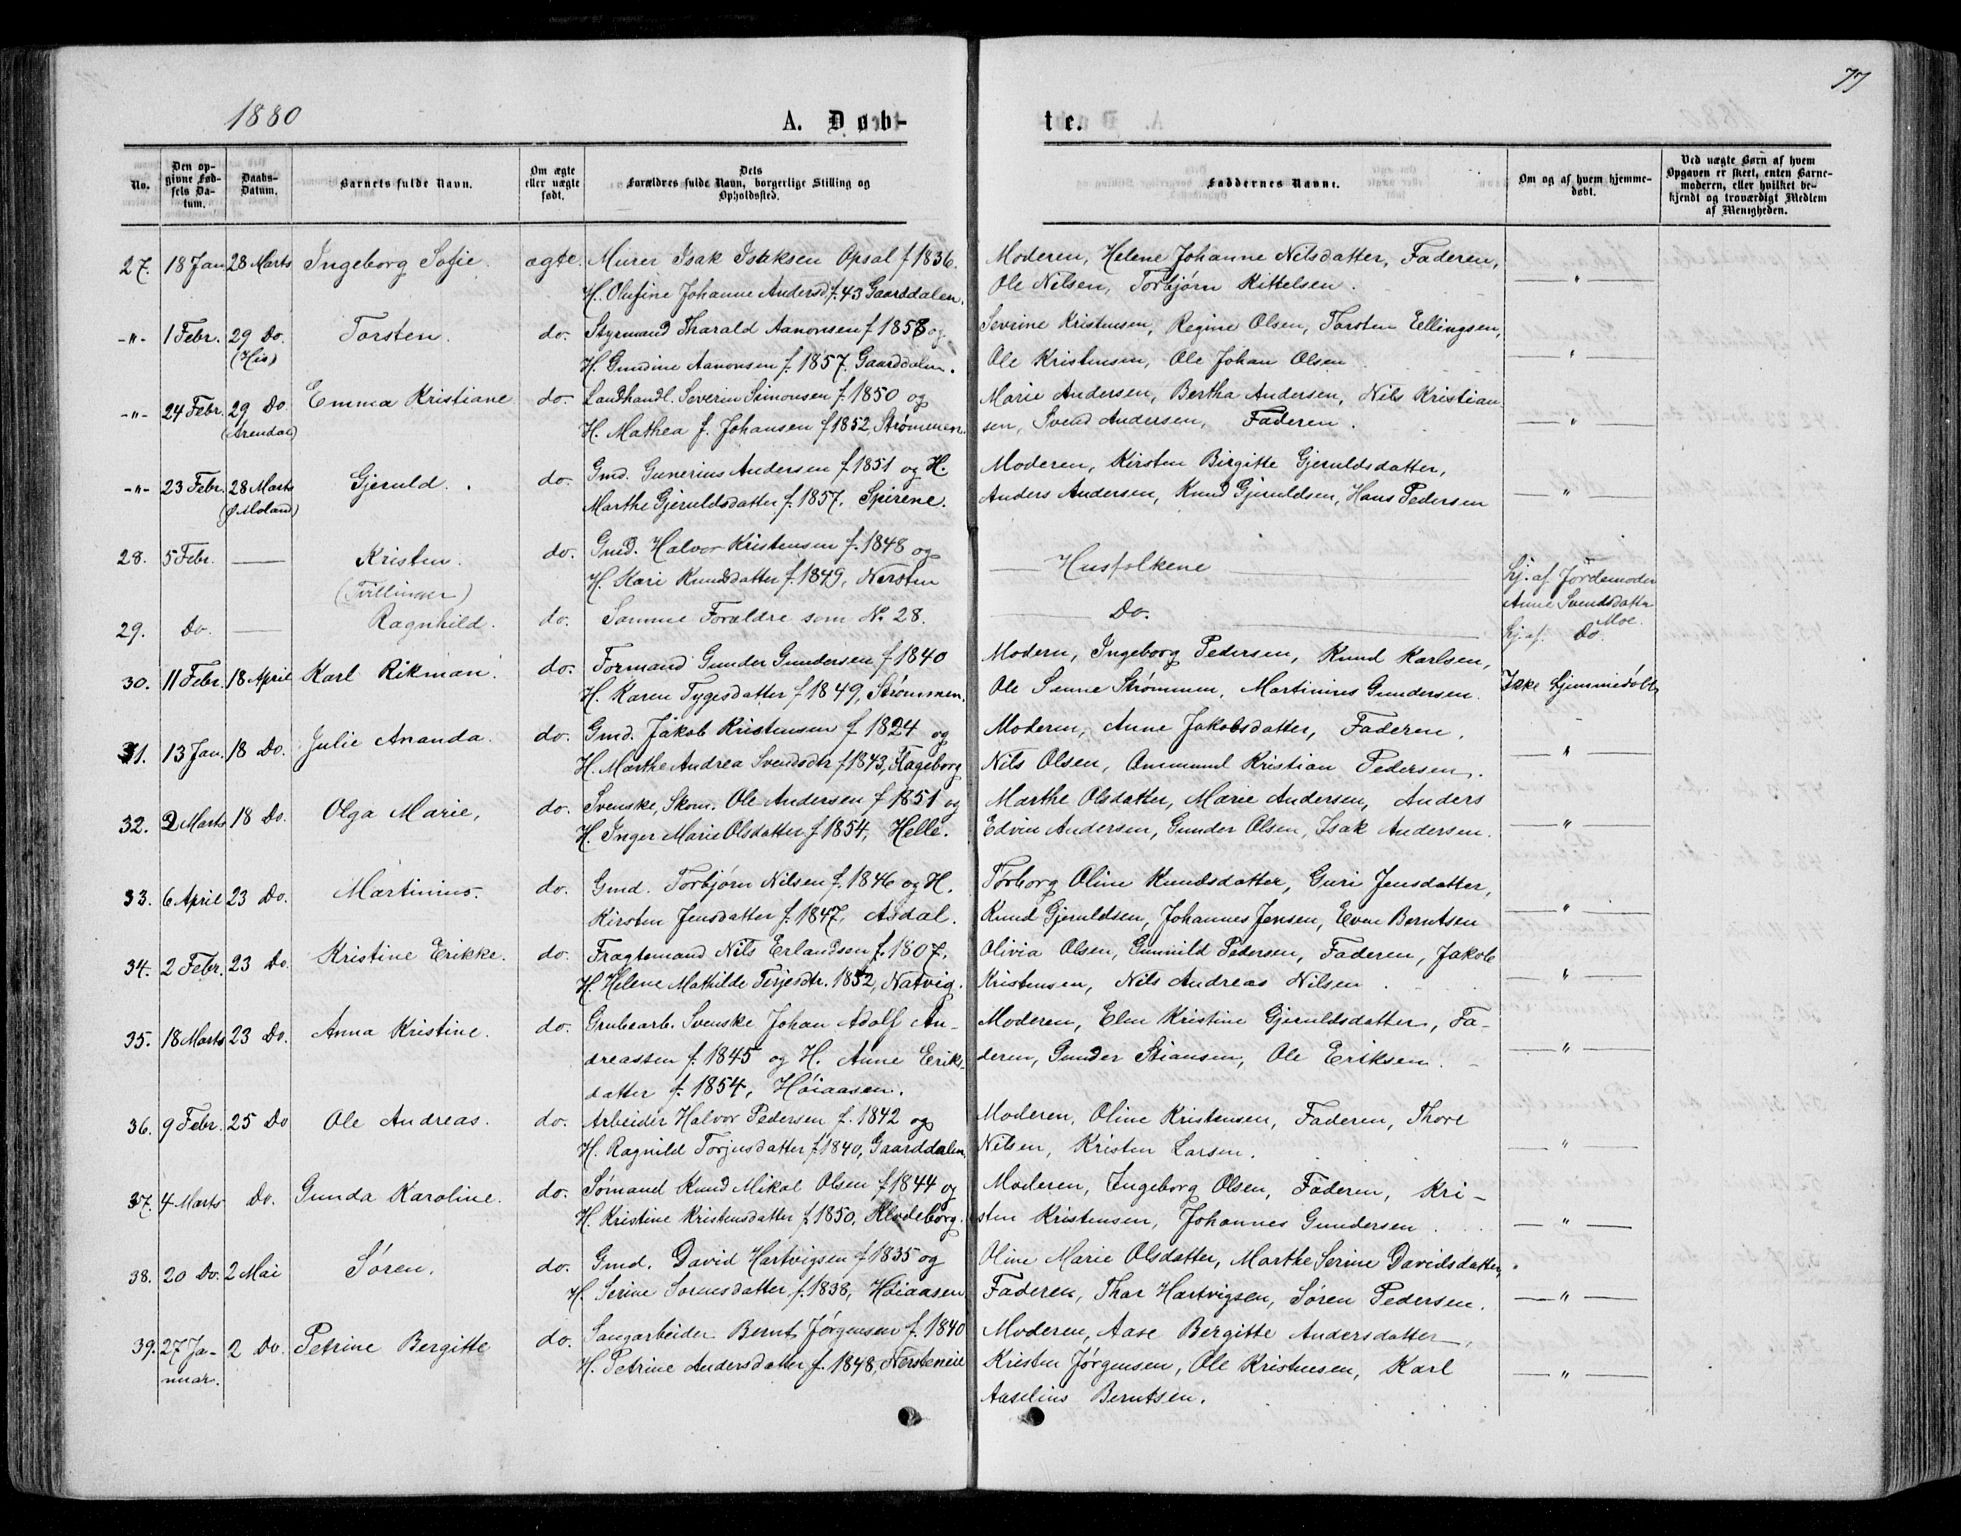 1880
A. Døb-
te.
77
No.
Den op-
givne Fød-
sels Da-
tum.
Daabs-
Datum.
Barnets fulde Navn.
Om ægte
eller uægte
født.
Dets
Forældres fulde Navn, borgerlige Stilling og
Opholdssted.
Faddernes Navne.
Om og af hvem hjemme-
døbt.
Ved uægte Børn af hvem
Opgaven er skeet, enten Barne-
moderen, eller hvilket be-
kjendt og troværdigt Medlem
af Menigheden.
27. 18 Jan 28 Marts Ingeborg Sofie. ægte. Murer Isak Isaksen Opsal f 1836. Moderen, Helene Johanne Nilsdatter, Faderen, "
H. Olufine Johanne Andersd. f. 43 Gaarddalen. Ole Nilsen, Torbjørn Kittelsen.
-"- 1 Febr. 29 Do. Torsten. do. Styrmand Tharald Aanonsen f 1858 og Severine Kristensen, Regine Olsen, Torsten Ellingsen,
(His) H. Gundine Aanonsen f. 1857. Gaarddalen. Ole Kristensen, Ole Johan Olsen "
-"- 24 Febr. 29 Do Emma Kristiane do. Landhandl. Severin Simonsen f. 1850 og Marie Andersen, Bertha Andersen, Nils Kristian
(Arendal) H. Mathea f. Johansen f 1852, Strømmen. sen, Svend Andersen, Faderen. "
-"- 23 Febr. 28 Marts Gjeruld. do. Gmd. Gunerius Andersen f 1851 og H. Moderen, Kirsten Birgitte Gjeruldsdatter,
(Ø Moland) Marthe Gjeruldsdatter f. 1857. Spirene. Anders Andersen, Knud Gjeruldsen, Hans Pedersen "
28. 5 Febr. — Kristen. do. Gmd. Halvor Kristensen f. 1848 og Husfolkene
(Tvillinger) H. Kari Knudsdatter f. 1849, Nersten Hj. af Jordemoder
Anne Svendsdatter
Moe.
29. Do. — Ragnhild. do. Samme Forældre som No. 28. Do. Hj. af. Do.
30. 11 Febr. 18 April Karl Rikman. do. Formand Gunder Gundersen f 1840 Modern, Ingeborg Pedersen, Knud Karlsen,
H. Karen Tygesdatter f 1849, Strømmen. Ole Sanne Strømmen, Martinius Gundersen. Ikke hjemmedøbt
31. 13 Jan. 18 Do. Julie Ananda. do. Gmd. Jakob Kristensen f 1824 og Moderen, Anne Jakobsdatter, Faderen,
H. Marthe Andrea Svendsdtr f 1843, Flageborg Nils Olsen, Ommund Kristian Pedersen. "
32. 2 Marts 18 Do. Olga Marie, do. Svenske, Skom. Ole Andersen f 1851 og Marthe Olsdatter, Marie Andersen, Anders
H. Inger Marie Olsdatter f 1854, Helle. Edvin Andersen, Gunder Olsen, Isak Andersen. "
33. 6 April 23 Do. Martinius. do. Gmd. Torbjørn Nilsen f. 1846 og H. Torborg Oline Knudsdatter, Guri Jensdatter,
Kirsten Jensdatter f. 1847, Asdal. Knud Gjeruldsen, Johannes Jensen, Even Berntsen "
34. 2 Febr. 23 Do. Kristine Erikke. do. Fragtemand Nils Erlandsen f. 1807. Olivia Olsen, Gunnild Pedersen, Faderen, Jakob
H. Helene Mathilde Terjesdtr. 1852, Natvig. Kristensen, Nils Andreas Nilsen "
35. 18 Marts 23 Do. Anna Kristine. do. Grubearb. Svenske Johan Adolf An- Moderen, Elen Kristine Gjeruldsdatter, Fa-
dreassen f. 1845 og H. Anne Eriks- deren, Gunder Stiansen, Ole Eriksen. "
datter f. 1854, Høiaasen.
36. 9 Febr. 25 Do Ole Andreas. do. Arbeider Halvor Pedersen f. 1842 og Moderen, Oline Kristensen, Faderen, Thore
H. Ragnild Torjusdatter f. 1840, Gaarddalen. Nilsen, Kristen Larsen. "
37. 4 Marts Do. Gunda Karoline. do. Sømand Knud Mikal Olsen f 1844 og Moderen, Ingeborg Olsen, Faderen, Kri-
H. Kristine Kristensdatter f. 1850, Klodeborg. sten Kristensen, Johannes Gundersen "
38. 20 Do. 2 Mai Søren. do. Gmd. David Hartvigsen f 1835 og Oline Marie Olsdatter, Marthe Serine Davidsdatter,
H. Serine Sørensdatter f. 1838, Høiaasen Faderen, Thor Hartvigsen, Søren Pedersen. "
39. 27 Ja- 2 Do. Petrine Bergitte do. Saugarbeider Bernt Jørgensen f. 1840 Moderen, Aase Bergitte Andersdatter,
nuar. H. Petrine Andersdatter f. 1848, Nersteneie Kristen Jørgensen, Ole Kristensen, Karl "
Aaselius Berntsen.